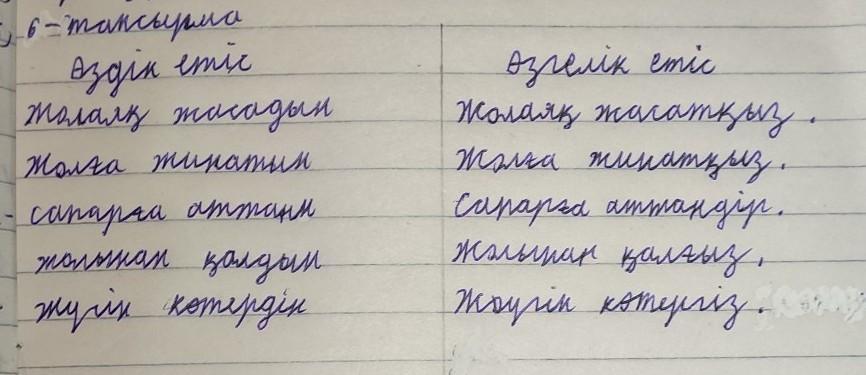 6-тапсырма
Өздік етіс Өзгелік етіс
Жолаяқ жасадын Жолаяқ жасатқыз.
Жолға жинатын Жолға жинатқыз.
сапарға аттанн Сапарға аттандір.
жолынан қалдын Жолынан қалғыз.
жүгін көтердін Жәүгін көтергіз.